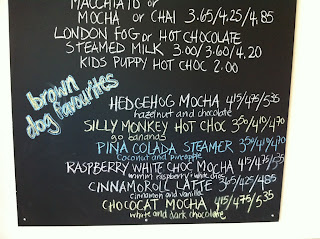 MACCHIATO or
MOCHA or CHAI 3.65/4.25/4.85
LONDON FOG or HOT CHOCOLATE
STEAMED MILK 3.00/3.60/4.20
KIDS PUPPY HOT CHOC 2.00
brown dog favourites
HEDGEHOG MOCHA 4.15/4.75/5.35
hazelnut and chocolate
SILLY MONKEY HOT CHOC 3.50/4.10/4.70
go bananas
PIÑA COLADA STEAMER 3.50/4.10/4.70
coconut and pineapple
RASPBERRY WHITE CHOC MOCHA 4.15/4.75/5.35
mmm raspberry + white choc
CINNAMOROLL LATTE 3.65/4.25/4.85
cinnamon and vanilla
CHOCOCAT MOCHA 4.15/4.75/5.35
white and dark chocolate